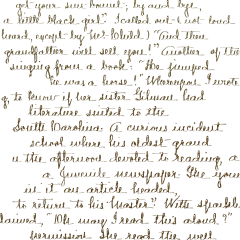 got your sun bonnet; by and bye,
a little black girl." I called out (not loud
heard, except by her-Wild) "and then
grandfather will sell you!" (Another of the
singing from a book." She jumped
he was a horse!" Whereupon I wrote
to know if her sister Gilman had
literature suited to the
South Carolina a curious incident
school where his oldest grand
the afternoon devoted to reading, a
a Juvenile newspaper. She gave
in it an article headed,
to return to his Master." With sparkle
claimed, "Oh may I read this aloud?"
permission. She read the well